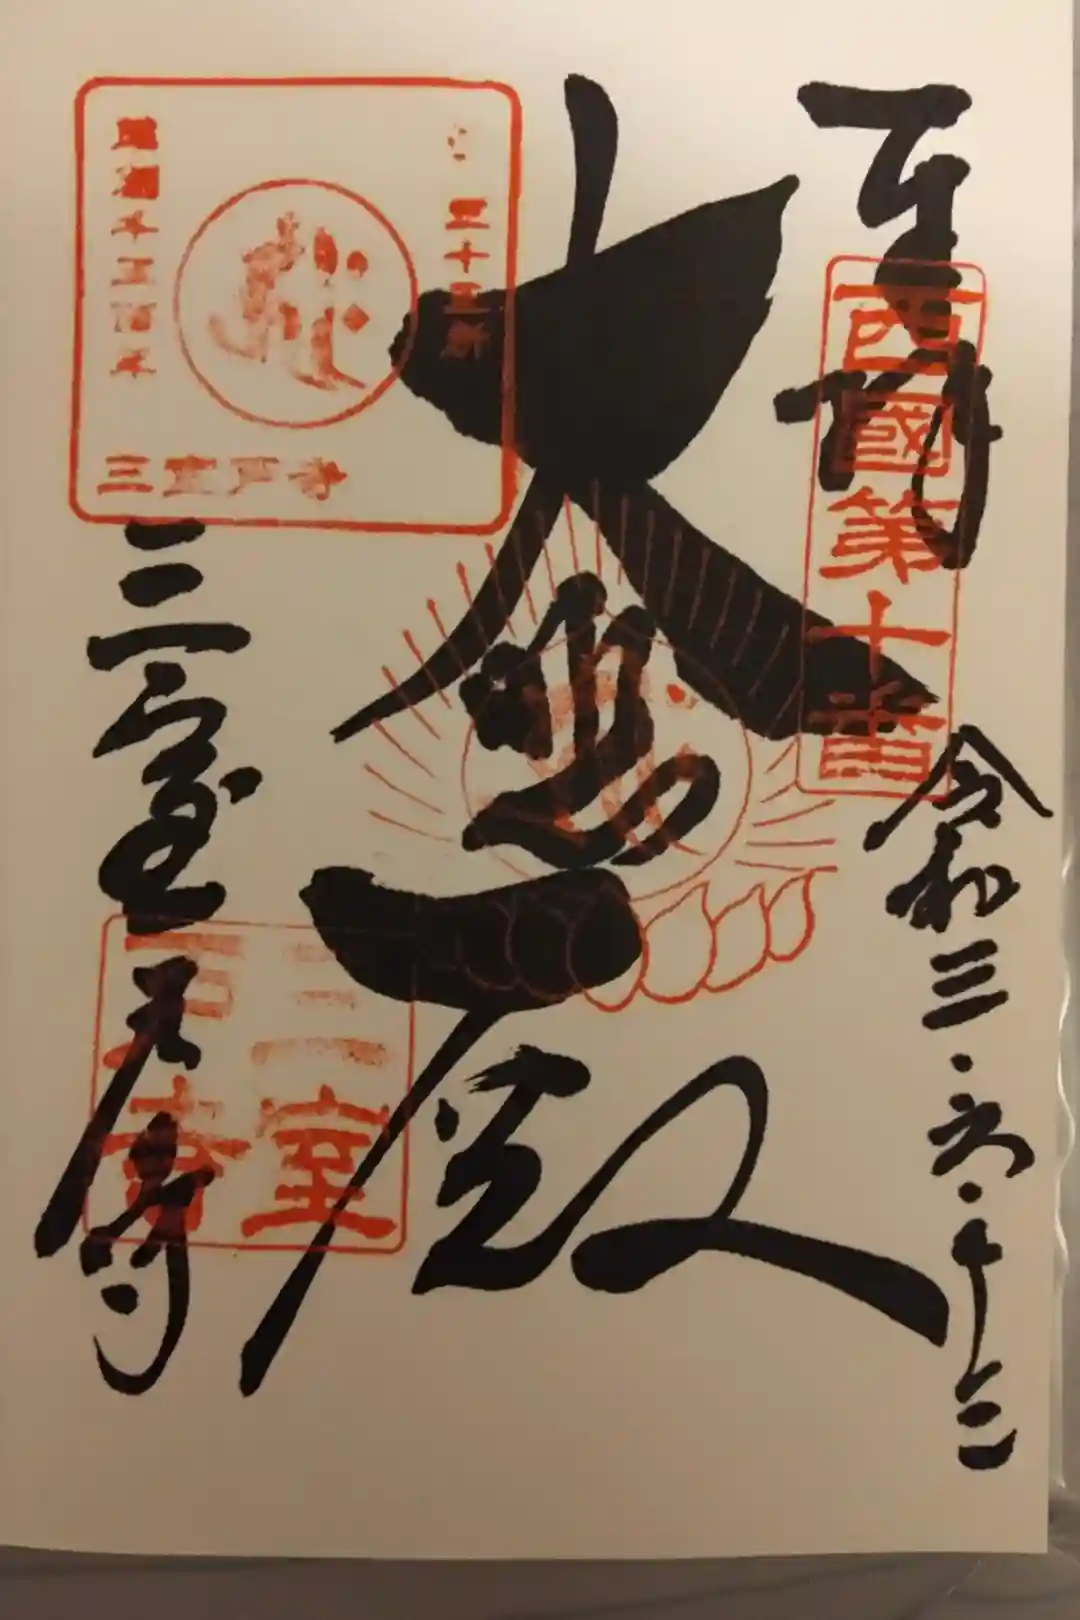 奉拝
西國第十番
令和三・六・十二
大悲殿
三室戸寺
三十三所
草創千三百年
三室戸寺
三室